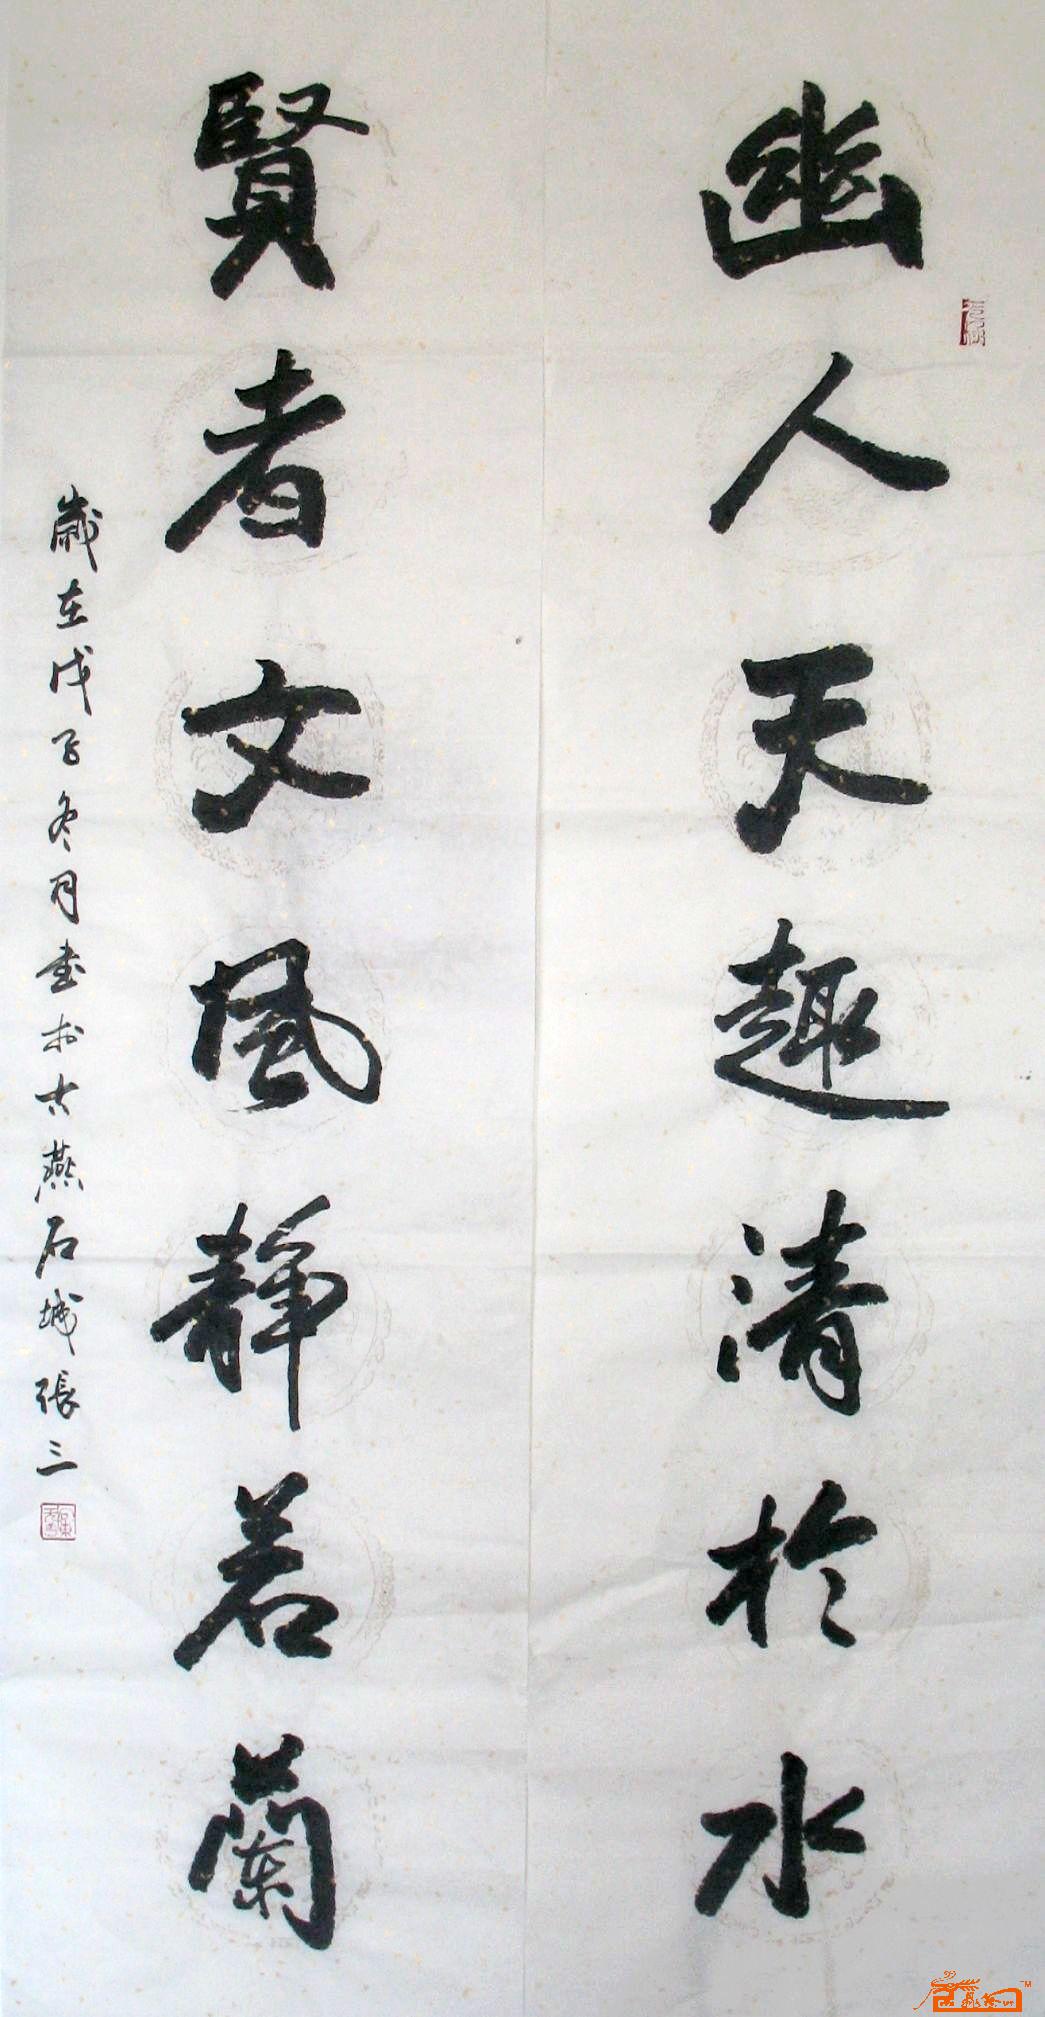 幽人天趣清於水
賢者文風靜若蘭
歲在戊子冬月書於古燕石城張三